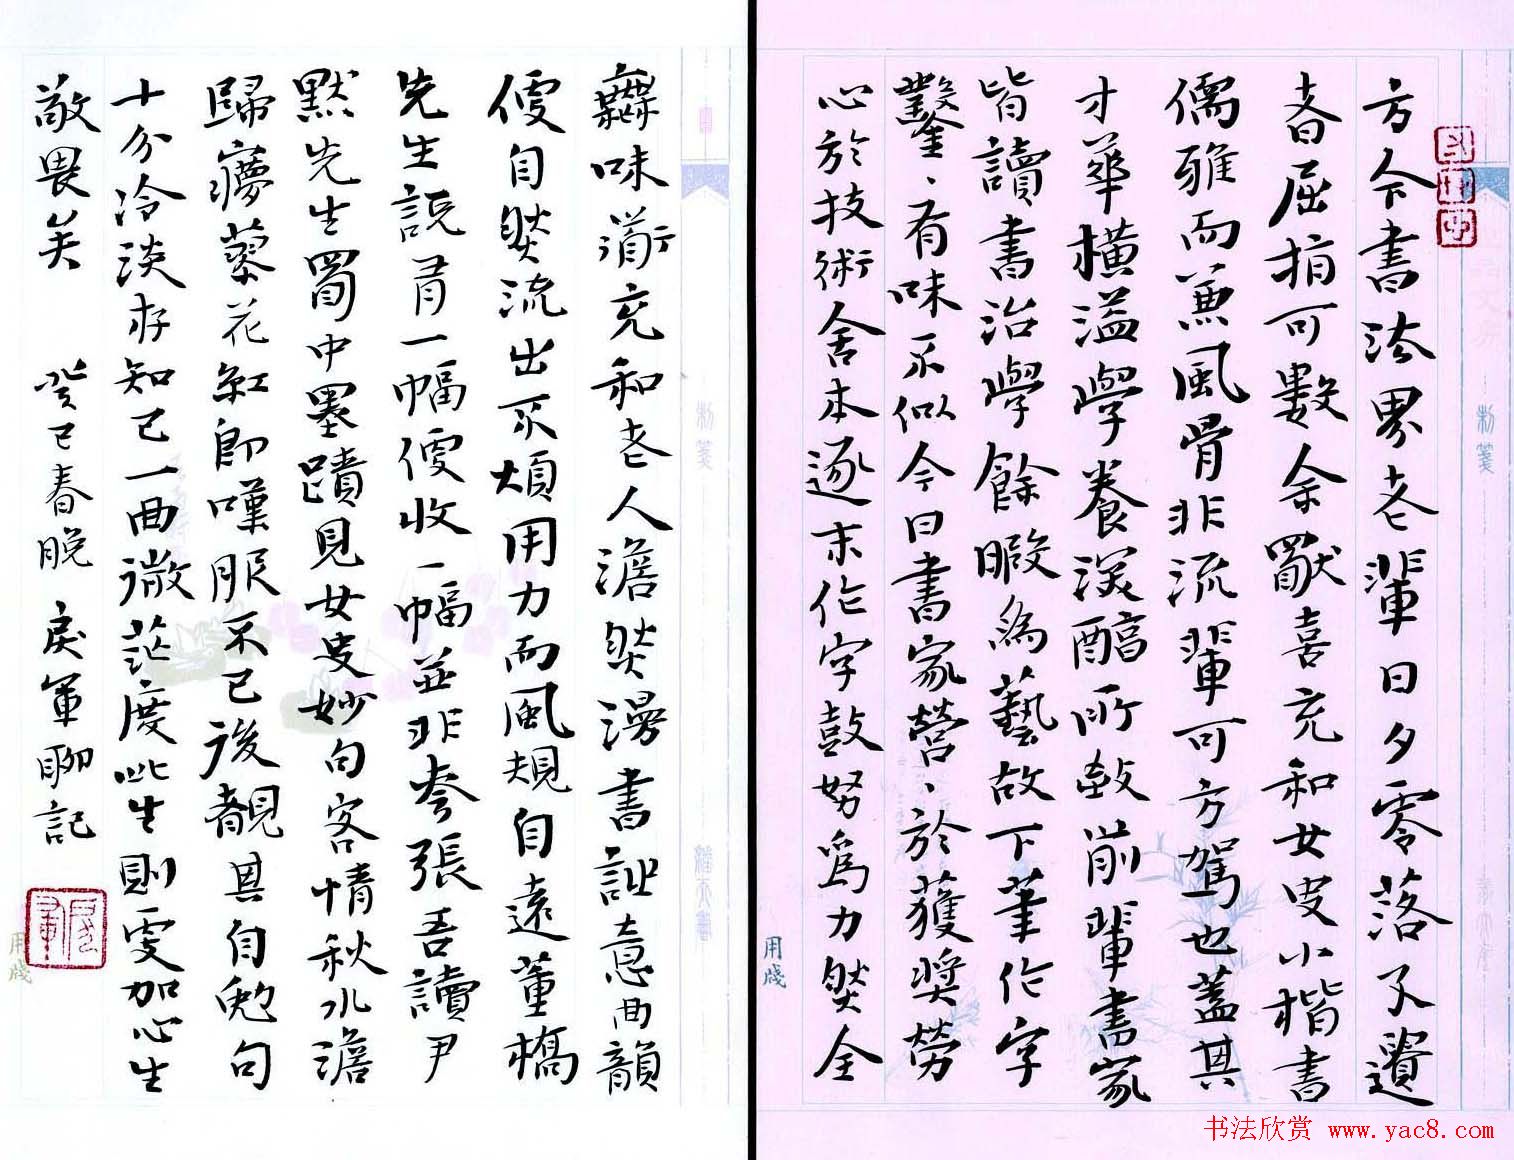 方今書法界老輩日夕零落孑遺
者屈指可數余獸喜充和女史小楷書
儒雅而兼風骨非流輩可方駕也蓋其
才華橫溢學養深醇所致前輩書家
皆讀書治學餘暇為藝故下筆作字
鑿、有味不似今日書家營、於獲獎勞
心於技術舍本逐末作字鼓努為力然全
無味道充和老人澹然漫書詘意曲韻
便自然流出不煩用力而風規自遠董橋
先生說看一幅便收一幅並非夸張吾讀尹
默先生蜀中墨蹟見女史妙句客情秋水澹
歸夢蓼花紅即嘆服不已後覩其自勉句
十分冷淡存知己一曲微茫度此生則雯加心生
敬畏矣 癸巳春晚 戾軍聊記
用牋
用牋
书法欣赏 www.yac8.com